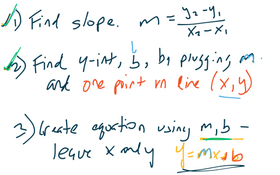 1) Find slope. m = y₂-y₁ / x₂-x₁
2) Find y-int, b, by plugging m
and one point on line (x, y)
3) Create equation using m, b -
leave x only y=mx+b